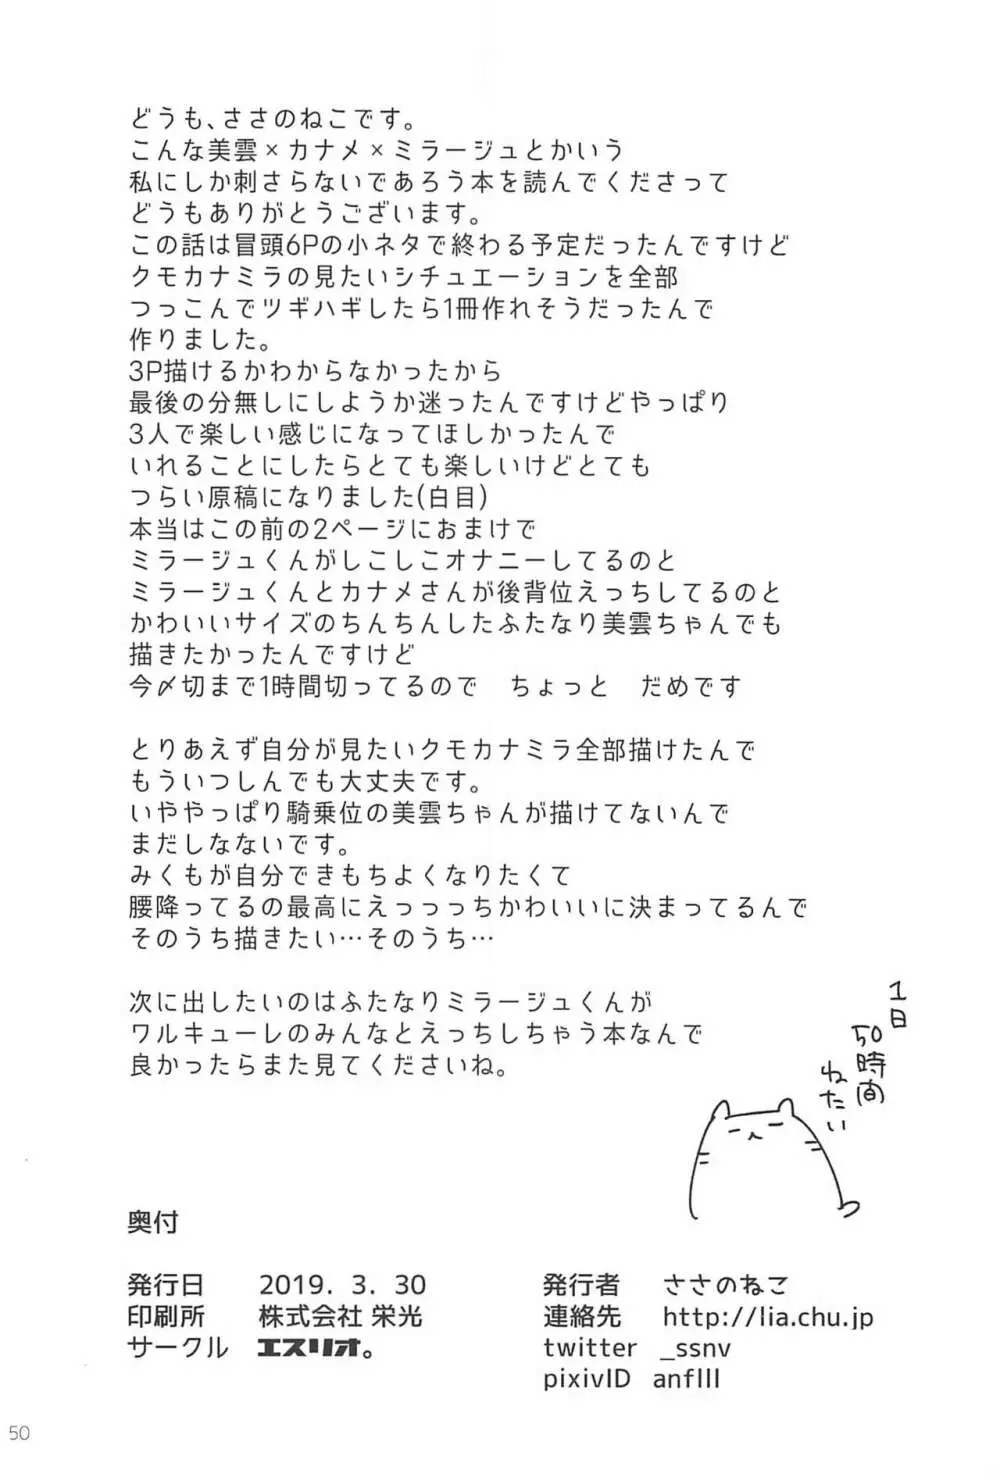 どうも、ささのねこです。
こんな美雲×カナメ×ミラージュとかいう
私にしか刺さらないであろう本を読んでくださって
どうもありがとうございます。
この話は冒頭6Pの小ネタで終わる予定だったんですけど
クモカナミラの見たいシチュエーションを全部
つっこんでツギハギしたら1冊作れそうだったんで
作りました。
3P描けるかわからなかったから
最後の分無しにしようか迷ったんですけどやっぱり
3人で楽しい感じになってほしかったんで
いれることにしたらとても楽しいけどとても
つらい原稿になりました(白目)
本当はこの前の2ページにおまけで
ミラージュくんがしこしこオナニーしてるのと
ミラージュくんとカナメさんが後背位えっちしてるのと
かわいいサイズのちんちんしたふたなり美雲ちゃんでも
描きたかったんですけど
今〆切まで1時間切ってるので　ちょっと　だめです
とりあえず自分が見たいクモカナミラ全部描けたんで
もういつしんでも大丈夫です。
いややっぱり騎乗位の美雲ちゃんが描けてないんで
まだしなないです。
みくもが自分できもちよくなりたくて
腰降ってるの最高にえっっっちかわいいに決まってるんで
そのうち描きたい…そのうち…
次に出したいのはふたなりミラージュくんが
ワルキューレのみんなとえっちしちゃう本なんで
良かったらまた見てくださいね。
1日
50時間
ねたい
奥付
発行日　2019. 3. 30
印刷所　株式会社 栄光
サークル　エスリオ。
発行者　ささのねこ
連絡先　http://lia.chu.jp
twitter　_ssnv
pixivID　anflll
50